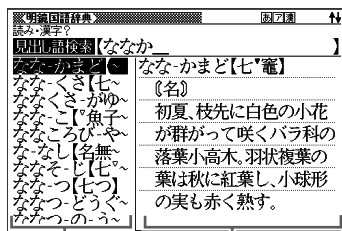 明鏡国語辞典 あ ア 漢
読み・漢字?
見出し語検索【ななか__ 】
なな-かまど【~
なな-くさ【七~
ななくさ-がゆ~
なな-こ【°魚子
ななころび-や~
な-なし【名無~
ななそ-じ【七▿~
なな-つ【七つ】
ななつ-どうぐ~
ななつ-の-う~
なな-かまど【七▾竈】
〘名〙
初夏、枝先に白色の小花
が群がって咲くバラ科の
落葉小高木。羽状複葉の
葉は秋に紅葉し、小球形
の実も赤く熟す。